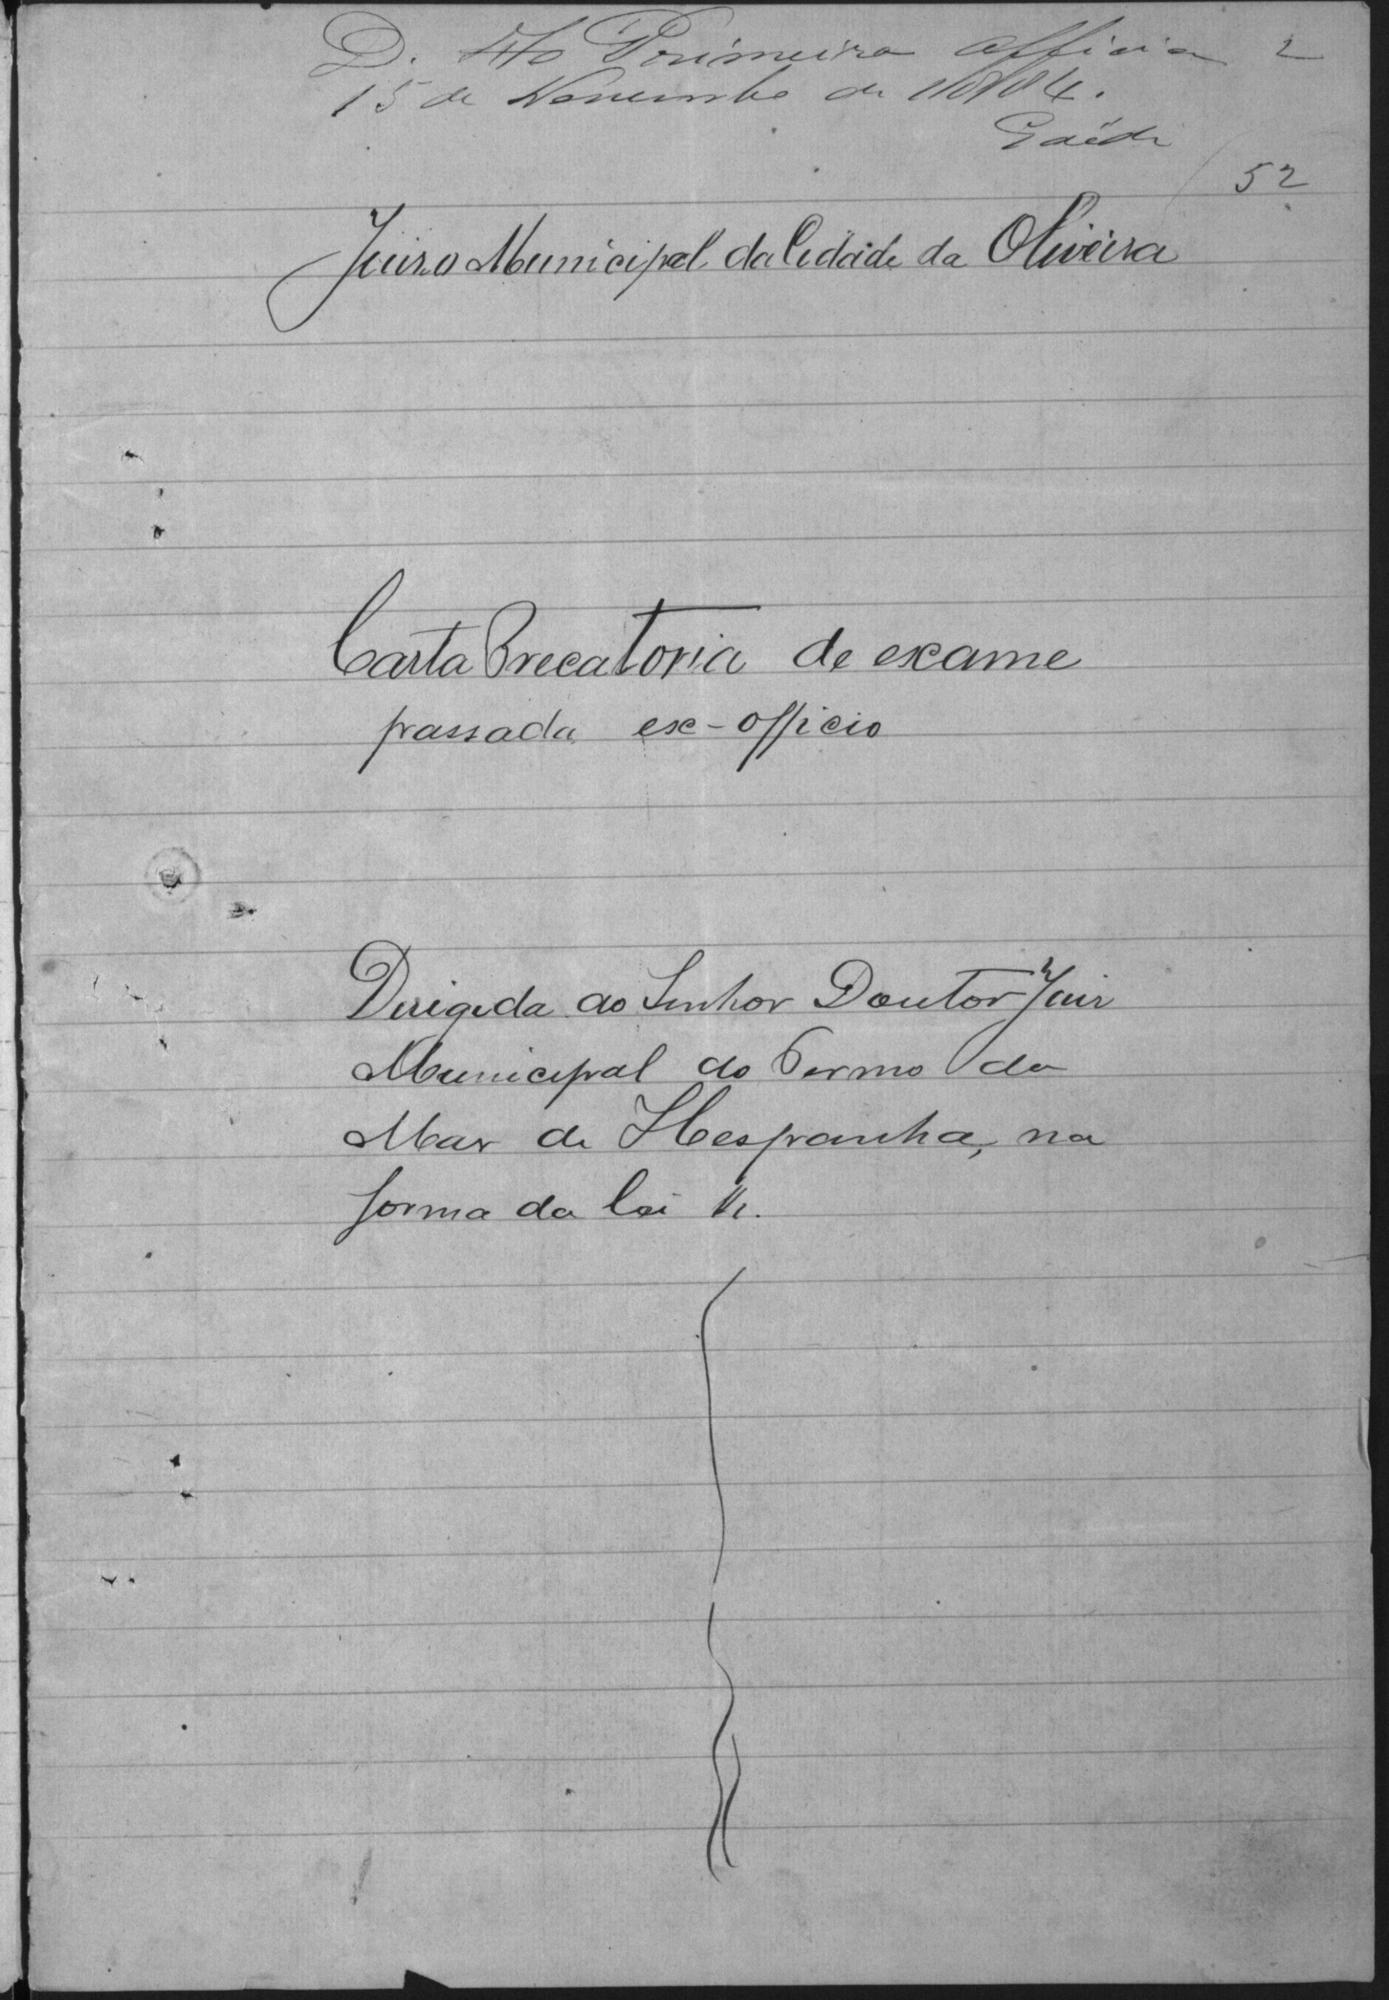 D. Ao Primeiro Officio 2
15 de Novembro de 1884.
52
Juizo Municipal da Cidade da Oliveira
Carta Precatoria de exame
passada ex-officio
Dirigida ao Senhor Doutor Juiz
Municipal do Termo do
Mar de Hespanha, na
forma da lei &.